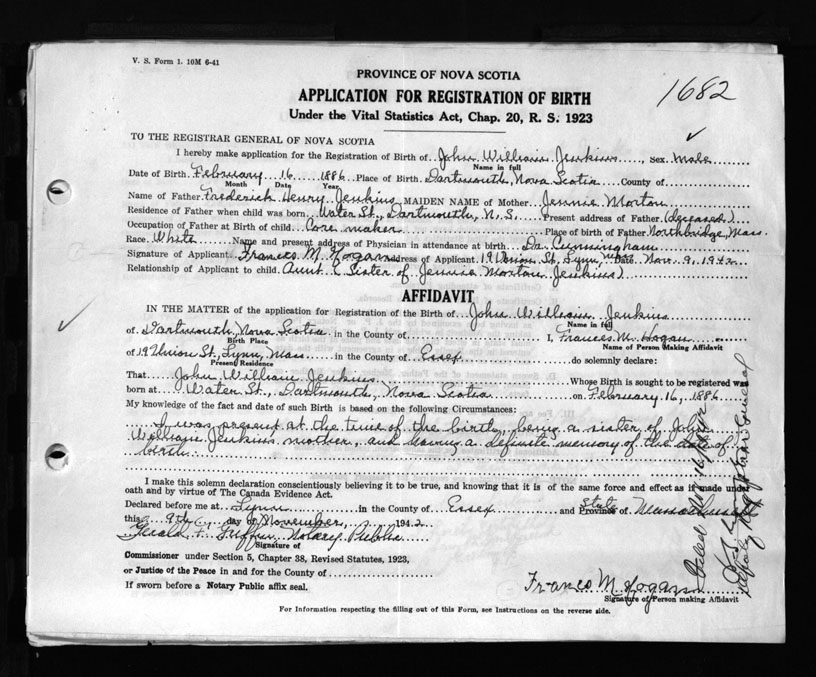 V. S. Form 1. 10M 6-41
1682
PROVINCE OF NOVA SCOTIA
APPLICATION FOR REGISTRATION OF BIRTH
Under the Vital Statistics Act, Chap. 20, R. S. 1923
TO THE REGISTRAR GENERAL OF NOVA SCOTIA
I hereby make application for the Registration of Birth of John William Jenkins, sex male
Name in full
Date of Birth February 16 1886 Place of Birth Dartmouth, Nova Scotia County of
Month Date Year
Name of Father Frederick Henry Jenkins MAIDEN NAME of Mother Jennie Morton
Residence of Father when child was born Water St., Dartmouth, N.S. Present address of Father (deceased)
Occupation of Father at Birth of child Core maker Place of birth of Father Northbridge, Mass.
Race White Name and present address of Physician in attendance at birth Dr. Cunningham
Signature of Applicant Frances M. Hogan Address of Applicant 19 Union St. Lynn, Mass Date Nov. 9, 1942
Relationship of Applicant to child Aunt (Sister of Jennie Morton Jenkins)
AFFIDAVIT
IN THE MATTER of the application for Registration of the Birth of John William Jenkins
Name in full
of Dartmouth, Nova Scotia in the County of I, Frances M. Hogan
Birth Place Name of Person Making Affidavit
of 19 Union St., Lynn, Mass. in the County of Essex do solemnly declare:
Present Residence
That John William Jenkins Whose Birth is sought to be registered was
born at Water St., Dartmouth, Nova Scotia on February 16, 1886
My knowledge of the fact and date of such Birth is based on the following Circumstances:
I was present at the time of the birth, being a sister of John
William Jenkins mother, and having a definite memory of the date of
birth.
I make this solemn declaration conscientiously believing it to be true, and knowing that it is of the same force and effect as if made under
oath and by virtue of The Canada Evidence Act.
Declared before me at Lynn in the County of Essex and State Province of Massachusetts
this 9th day of November, 1942
Griffin Notary Public
Signature of
Commissioner under Section 5, Chapter 38, Revised Statutes, 1923,
or Justice of the Peace in and for the County of
If sworn before a Notary Public affix seal.
Frances M. Hogan
Signature of Person making Affidavit
For Information respecting the filling out of this Form, see Instructions on the reverse side.
Deputy Registrar General